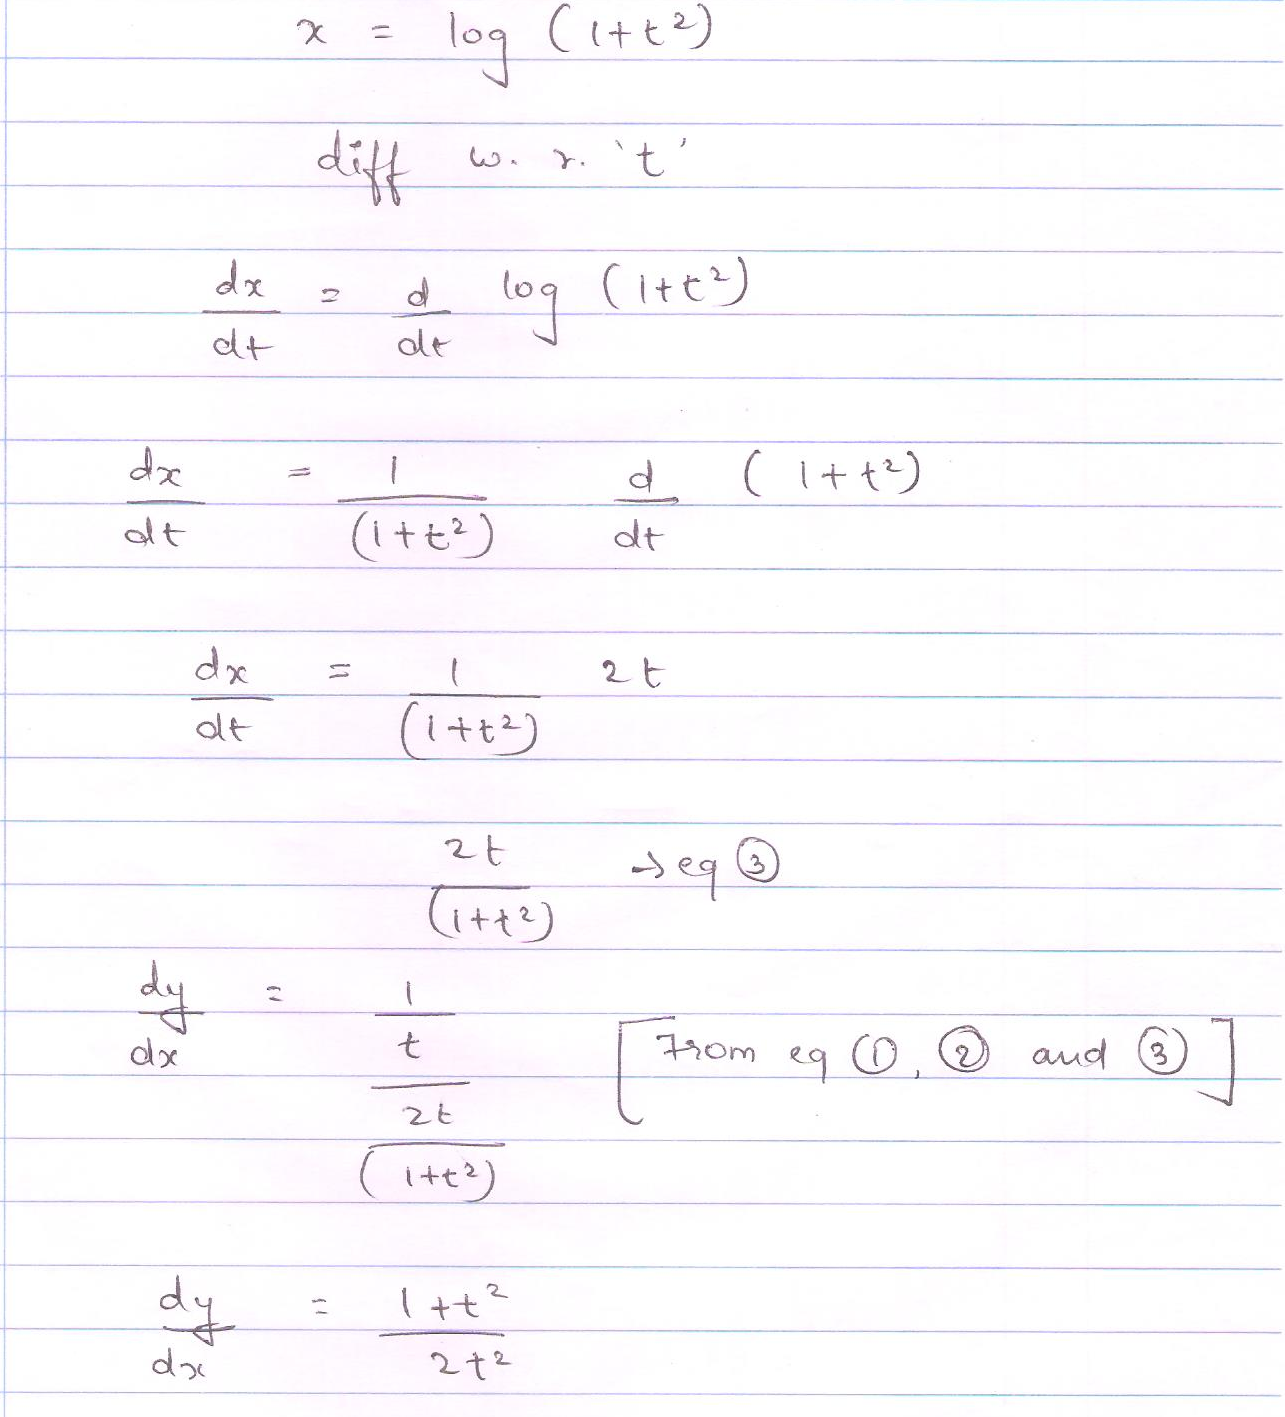 x = log (1+t²)
diff w. r. 't'
dx/dt = d/dt log (1+t²)
dx/dt = 1/(1+t²) d/dt (1+t²)
dx/dt = 1/(1+t²) 2t
2t/(1+t²) → eq ③
dy/dx = (1/t)/(2t/(1+t²)) [From eq ①, ② and ③]
dy/dx = 1+t²/2t²